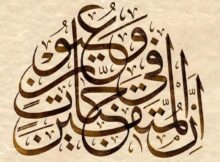 إن المتقين
في جنات
وعيون